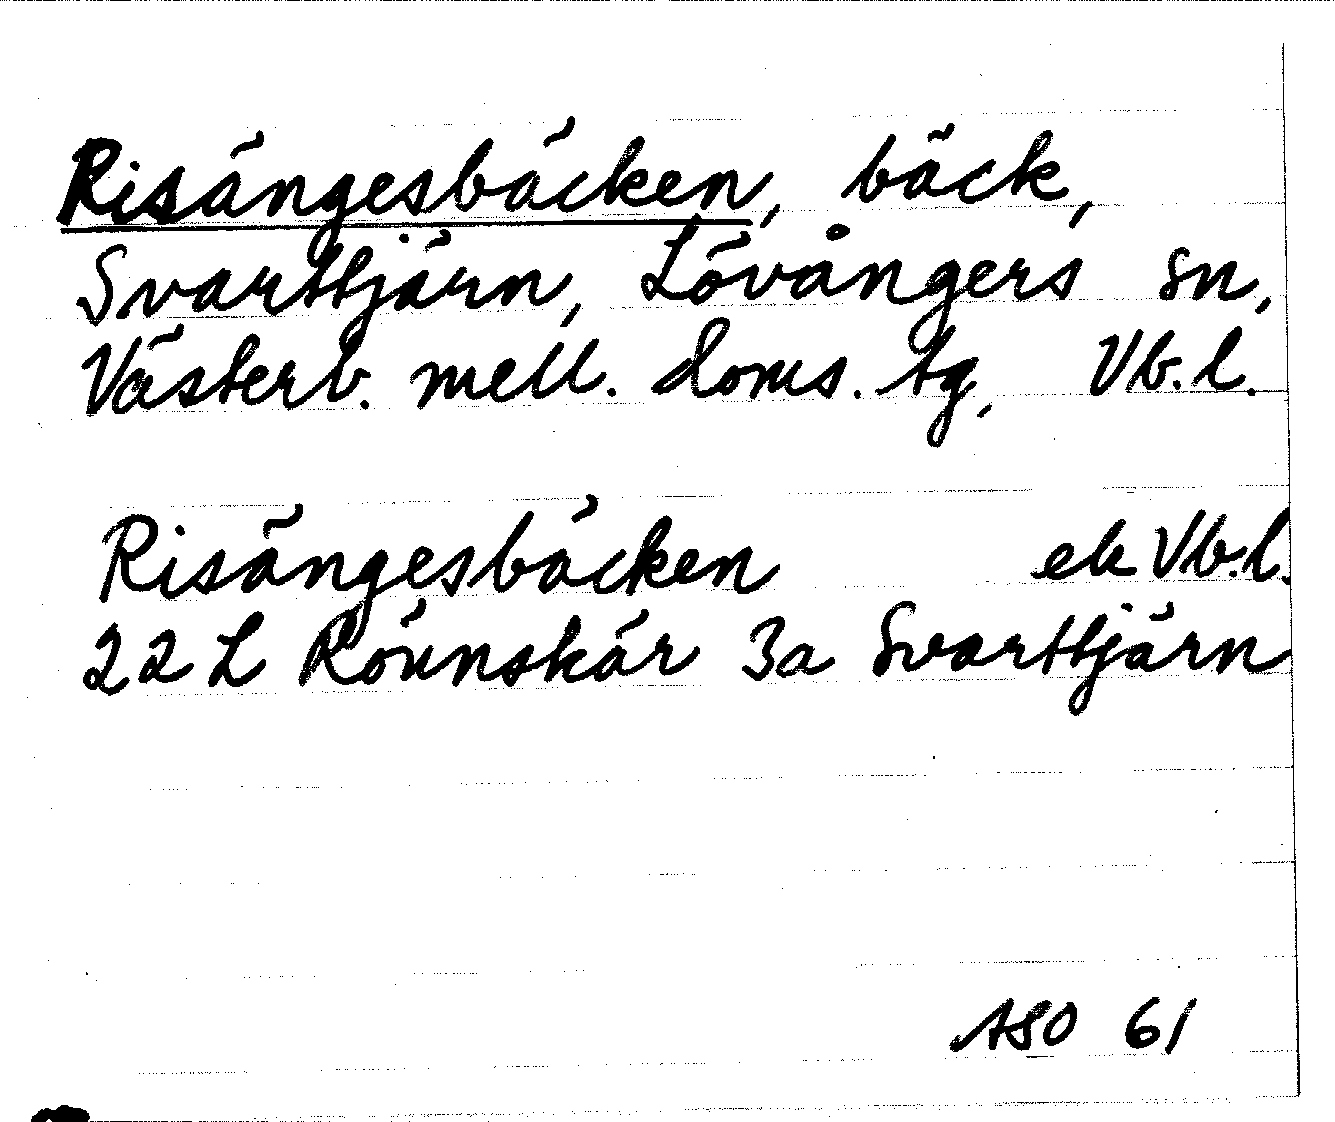 Risängesbäcken, bäck,
Svarttjärn, Lövångers sn,
Västerb. mell. doms. tg, Vb. l.
Risängesbäcken ek Vb. l.
22 L Rönnskär 3a Svarttjärn
ASO 61